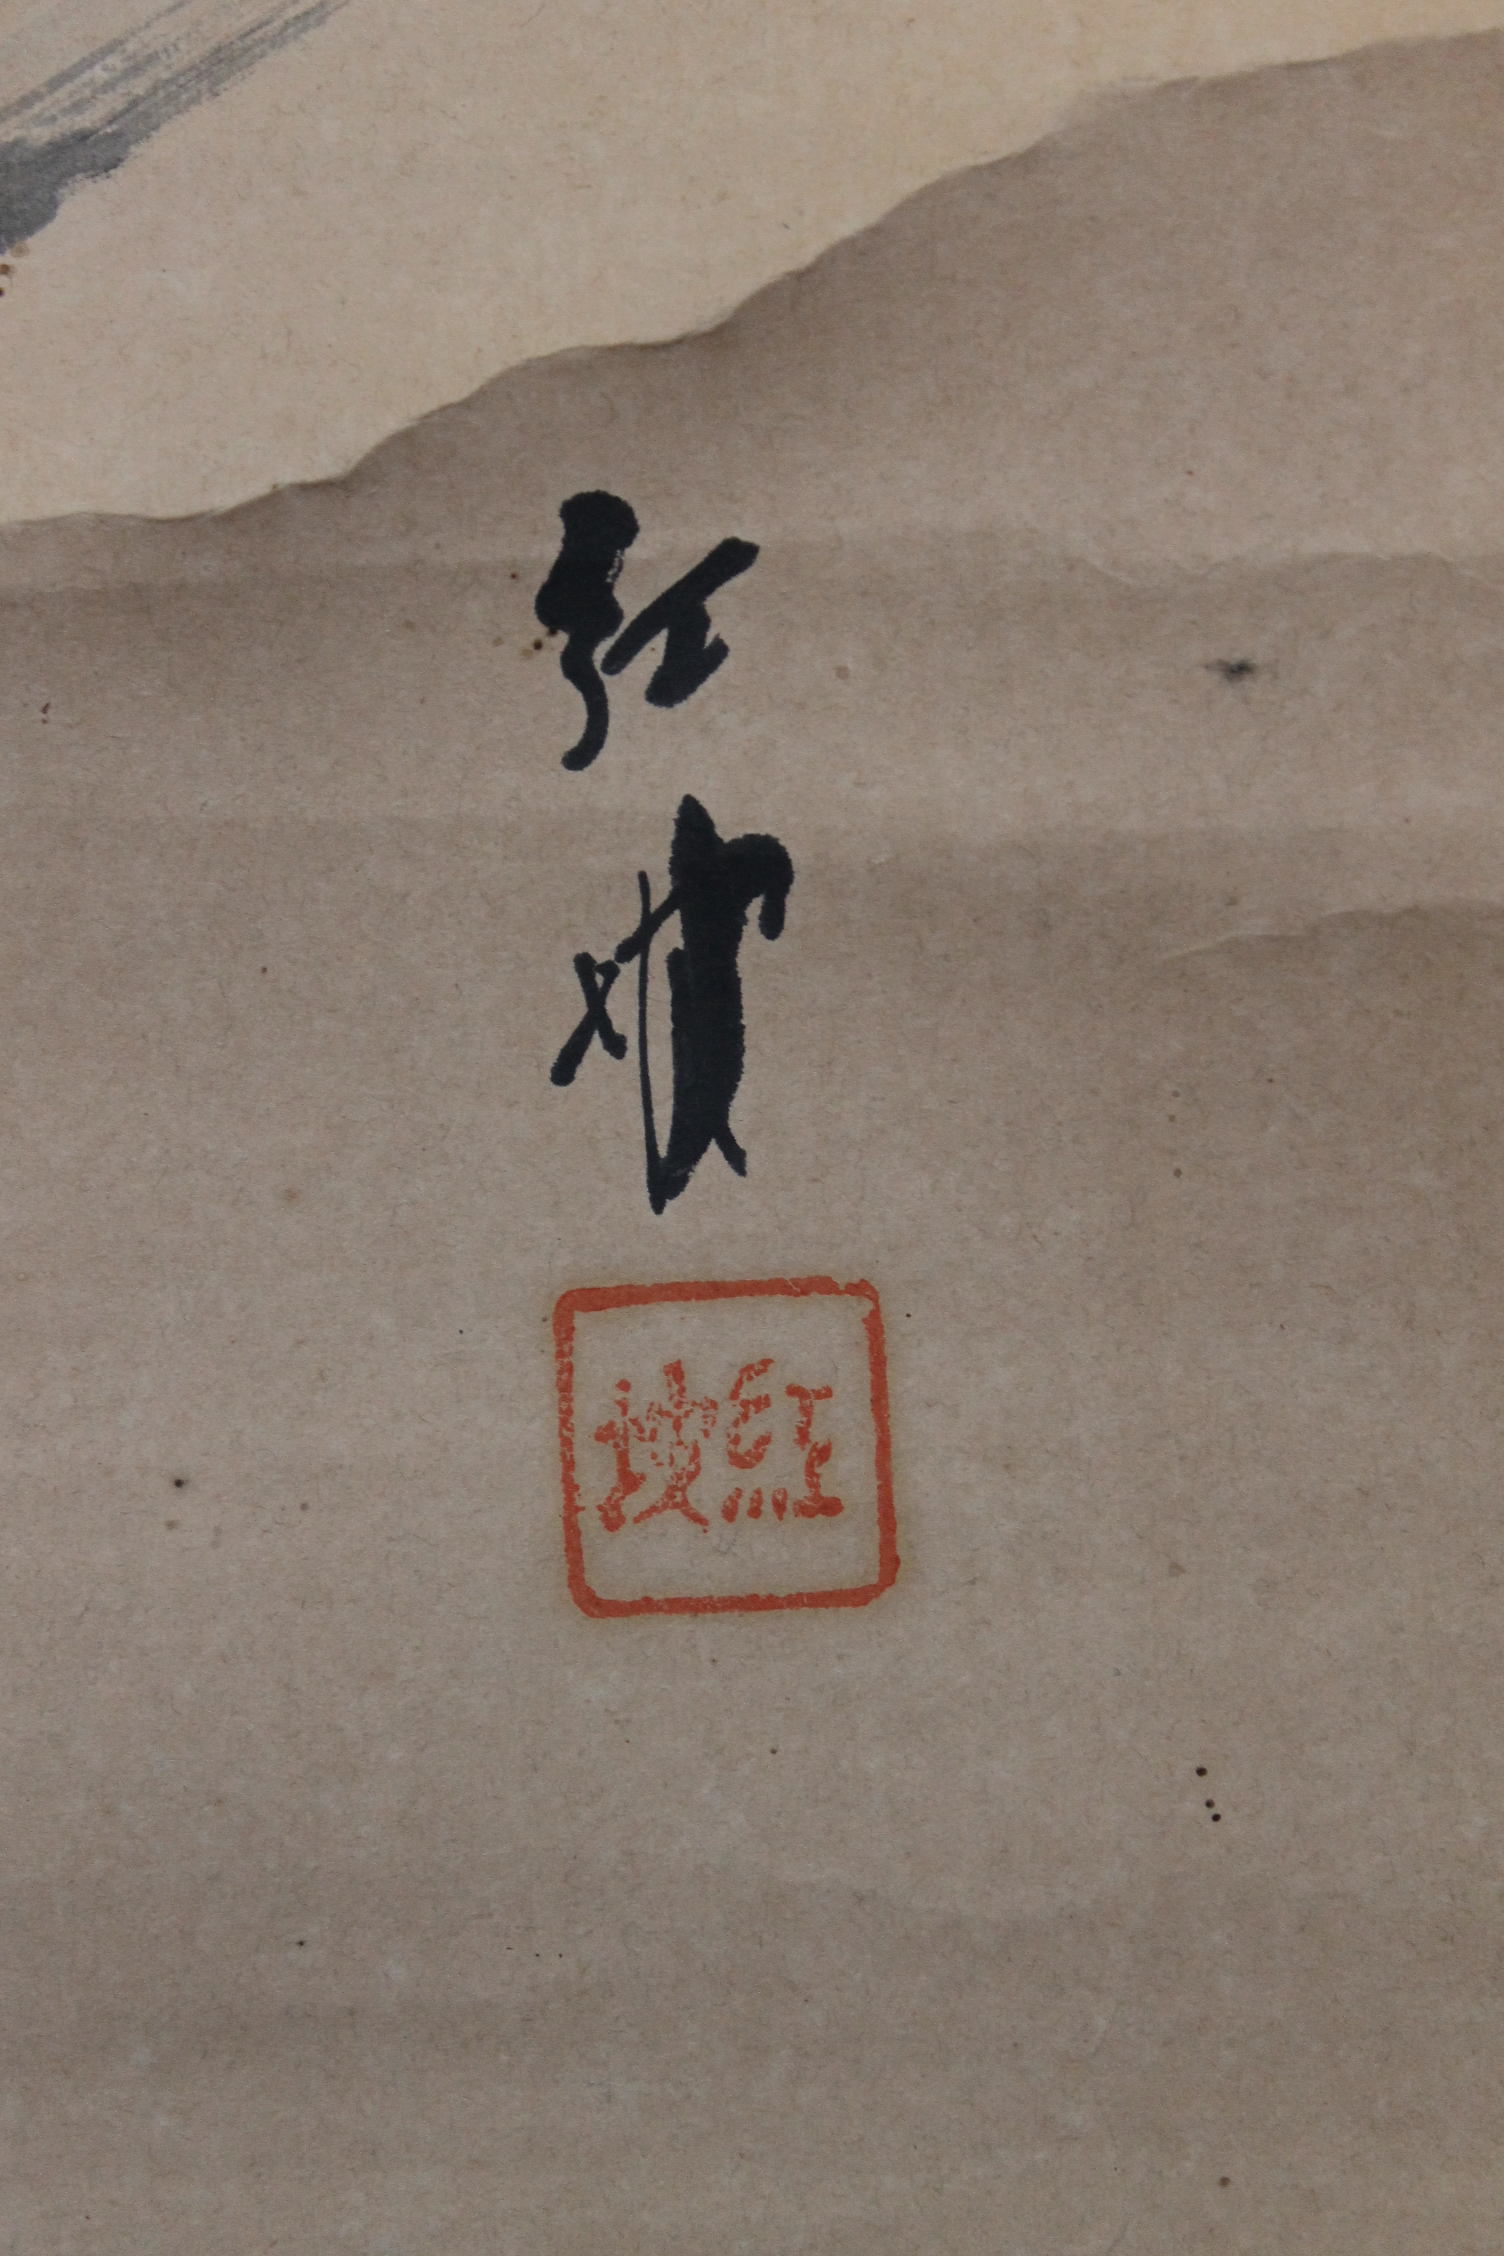 紅坡
紅坡